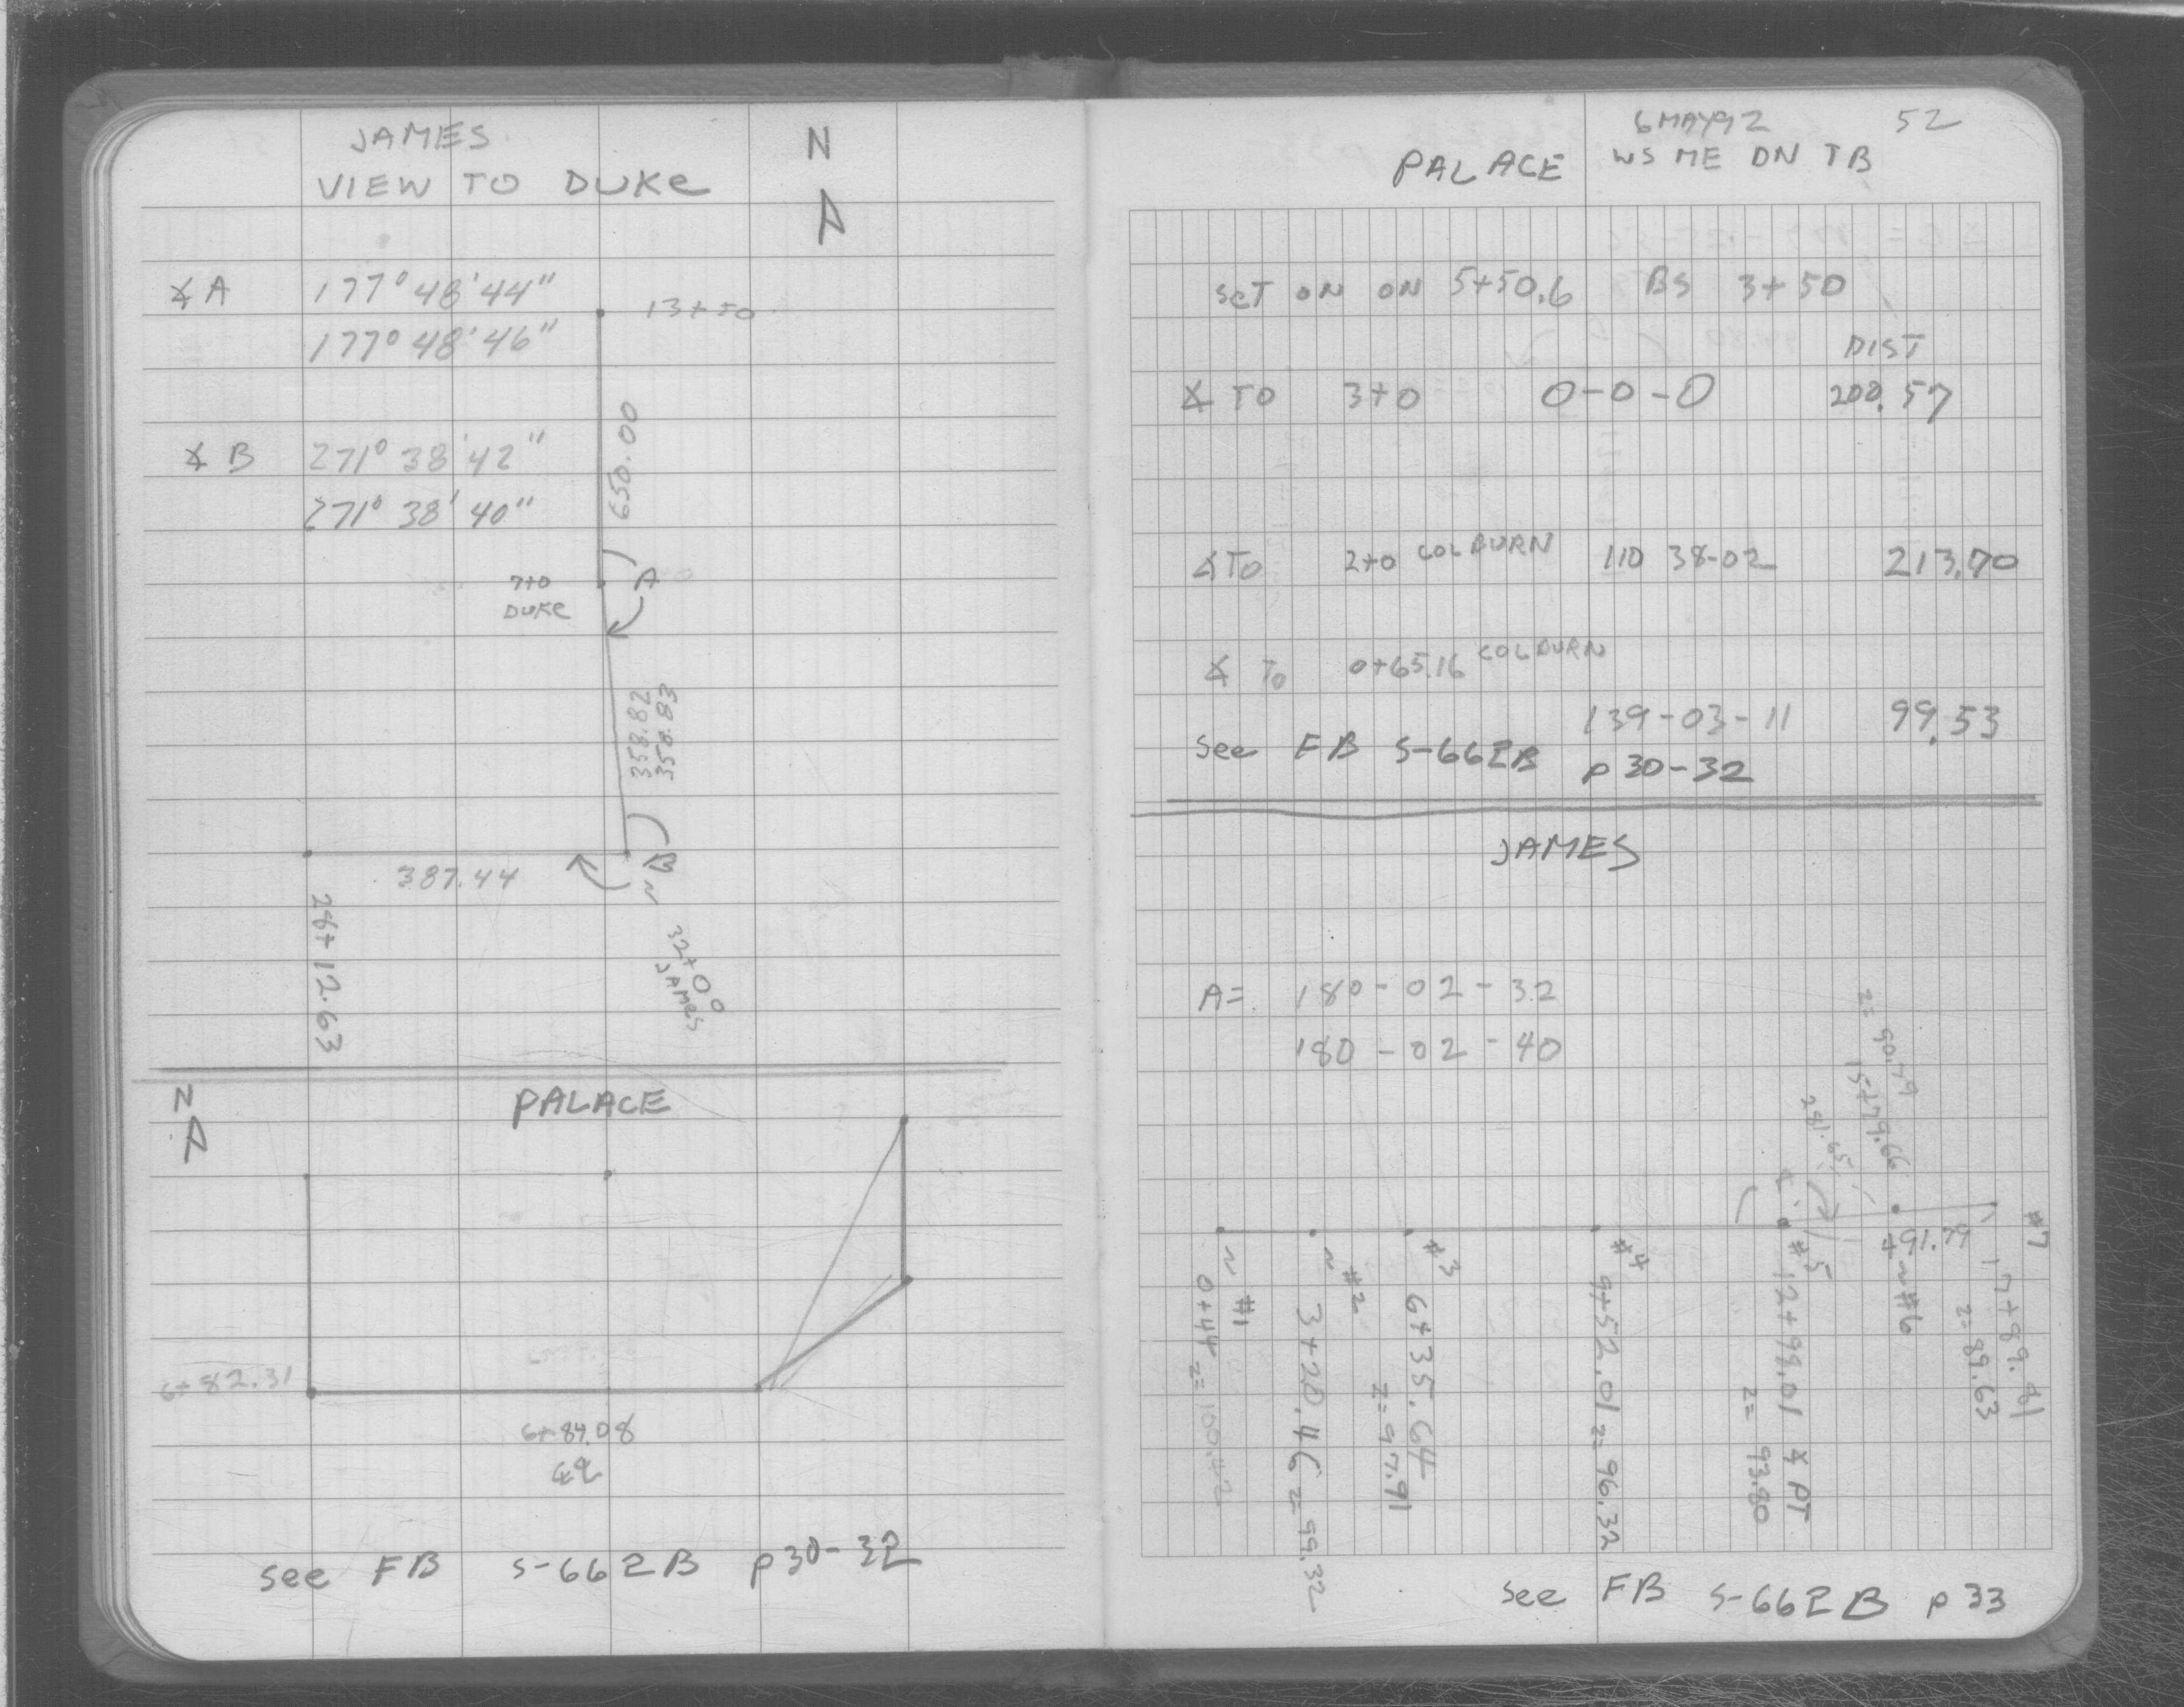 JAMES
VIEW TO DUKE
N
∡ A 177° 48' 44"
177° 48' 46"
13+50
∡ B 271° 38' 42"
271° 38' 40"
650.00
7+0
DUKE
A
358.82
358.83
387.44
B
28+12.63
32+00
JAMES
N
PALACE
6+82.31
6+84.08
see FB S-662B p30-32
6MAY92
52
PALACE
WS ME DN TB
SET ON ON 5+50.6 BS 3+50
DIST
∡ TO 3+0 0-0-0 200.57
∡ TO 2+0 COLBURN 110 38-02 213.70
∡ To 0+65.16 COLBURN
139-03-11 99.53
see FB S-662B p30-32
JAMES
A= 180-02-32
180-02-40
z= 90.79
15+79.66
281.65
#1
0+44 z= 100.42
#2
3+20.46 z= 99.32
#3
6+35.64
z= 97.91
#4
9+52.01 z= 96.32
#5
12+98.01 ∡ PT
z= 93.80
+91.79
#6
#7
17+89.81
z= 89.63
see FB S-662B p33